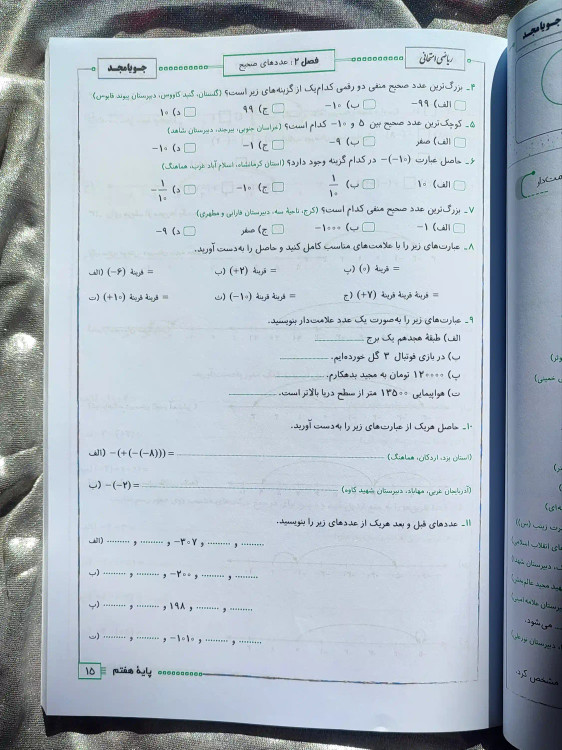 ریاضی امتحانی
فصل ۲ : عددهای صحیح
جـویـامجـد
۴ـ بزرگ‌ترین عدد صحیح منفی دو رقمی کدام‌یک از گزینه‌های زیر است؟ (گلستان، گنبد کاووس، دبیرستان پیوند قابوس)
الف) ۹۹− ب) ۱۰− ج) ۹۹ د) ۱۰
۵ـ کوچک‌ترین عدد صحیح بین ۵ و ۱۰− کدام است؟ (خراسان جنوبی، بیرجند، دبیرستان شاهد)
الف) صفر ب) ۹− ج) ۱− د) ۱۰−
۶ـ حاصل عبارت (۱۰−)− در کدام گزینه وجود دارد؟ (استان کرمانشاه، اسلام آباد غرب، هماهنگ)
الف) ۱۰ ب) ۱/۱۰ ج) ۱۰− د) ۱/۱۰−
۷ـ بزرگ‌ترین عدد صحیح منفی کدام است؟ (کرج، ناحیهٔ سه، دبیرستان فارابی و مطهری)
الف) ۱− ب) ۱۰۰۰− ج) صفر د) ۹−
۸ـ عبارت‌های زیر را با علامت‌های مناسب کامل کنید و حاصل را به‌دست آورید.
الف) (۶−) قرینهٔ = ب) (۲+) قرینهٔ = پ) (۰) قرینهٔ =
ت) (۱۰+) قرینهٔ قرینهٔ = ث) (۱۰−) قرینهٔ قرینهٔ = ج) (۷+) قرینهٔ قرینهٔ قرینهٔ =
۹ـ عبارت‌های زیر را به‌صورت یک عدد علامت‌دار بنویسید.
الف) طبقهٔ هجدهم یک برج ..........
ب) در بازی فوتبال ۳ گل خورده‌ایم. ..........
پ) ۱۲۰۰۰۰ تومان به مجید بدهکارم. ..........
ت) هواپیمایی ۱۳۵۰۰ متر از سطح دریا بالاتر است. ..........
۱۰ـ حاصل هریک از عبارت‌های زیر را به‌دست آورید.
الف) −(+(−(−۸))) = .......... (استان یزد، اردکان، هماهنگ)
ب) −(−۲) = .......... (آذربایجان غربی، مهاباد، دبیرستان شهید کاوه)
۱۱ـ عددهای قبل و بعد هریک از عددهای زیر را بنویسید.
الف) ......... و ......... و −۳۰۷ و ......... و .........
ب) ......... و ......... و −۲۰۰ و ......... و .........
پ) ......... و ......... و ۱۹۸ و ......... و .........
ت) ......... و ......... و −۱۰۱۰ و ......... و .........
پایهٔ هفتم
۱۵
جـویـامجـد
مت‌دار
خمینی)
رت زینب (س))
های انقلاب اسلامی)
می‌شود.
مشخص کرد.